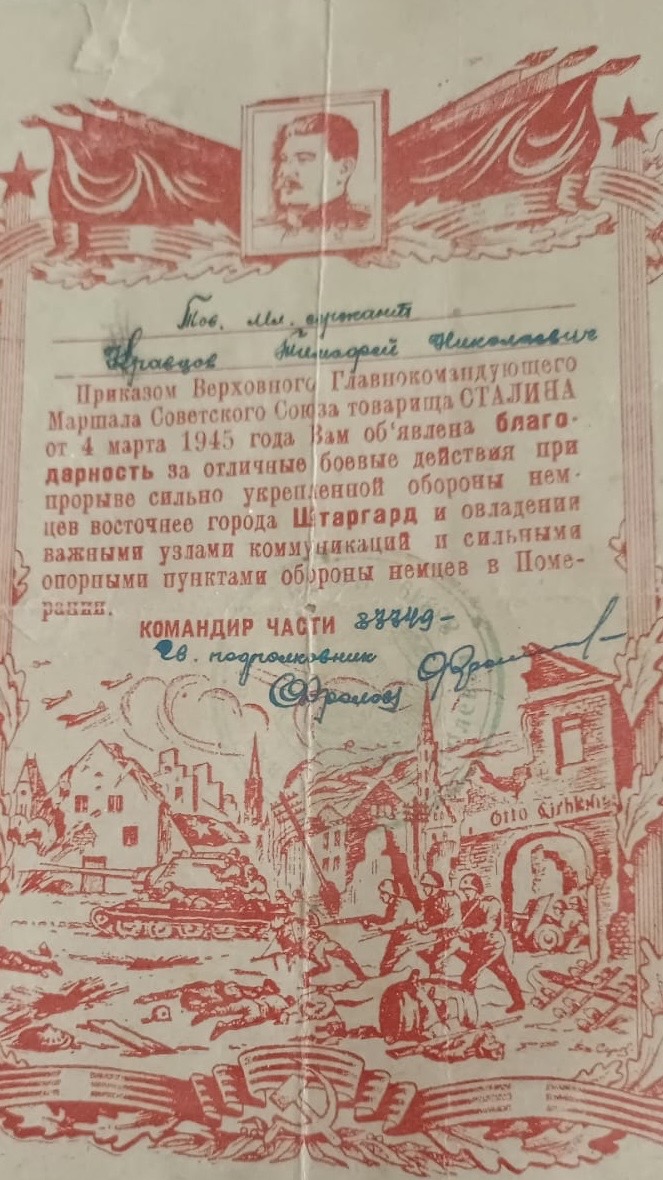 Тов. мл. сержант
Кравцов Тимофей Николаевич
Приказом Верховного Главнокомандующего
Маршала Советского Союза товарища СТАЛИНА
от 4 марта 1945 года Вам об‘явлена благо-
дарность за отличные боевые действия при
прорыве сильно укрепленной обороны нем-
цев восточнее города Штаргард и овладении
важными узлами коммуникаций и сильными
опорными пунктами обороны немцев в Поме-
рании.
КОМАНДИР ЧАСТИ 33749-
Гв. подполковник
Фролов
Otto